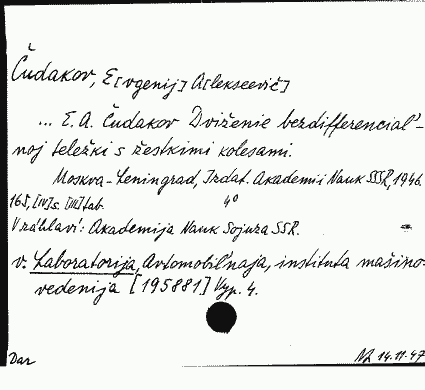 Čudakov, E[vgenij] A[lekseevič]
... E. A. Čudakov Dviženie bezdifferencial'-
noj teležki s žestkimi kolesami.
Moskva-Leningrad, Izdat. Akademii Nauk SSSR, 1946.
165, [IV] s. [III] tab. 4°
V záhlaví: Akademija Nauk Sojuza SSR.
v. Laboratorija, Avtomobil'naja, instituta mašino-
vedenija [195881] Vyp. 4.
Dar NZ 14.11.47